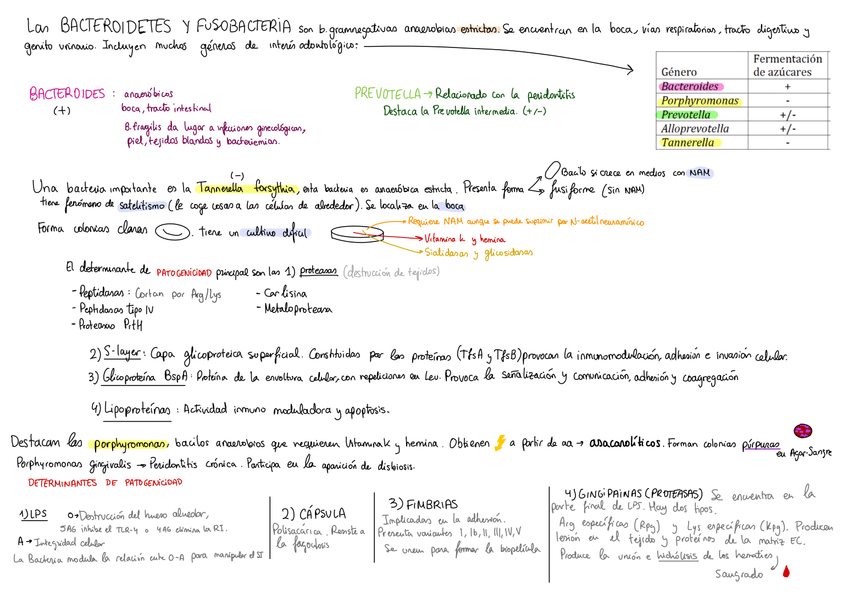 Las BACTEROIDETES Y FUSOBACTERIA son b. gramnegativas anaerobias estrictas. Se encuentran en la boca, vías respiratorias, tracto digestivo y
genito urinario. Incluyen muchos géneros de interés odontológico:
Género Fermentación de azúcares
Bacteroides +
Porphyromonas -
Prevotella +/-
Alloprevotella +/-
Tannerella -
BACTEROIDES : anaeróbicos
(+) boca, tracto intestinal
B. fragilis da lugar a infecciones ginecológicas,
piel, tejidos blandos y bacteriemias.
PREVOTELLA → Relacionado con la periodontitis
Destaca la Prevotella intermedia. (+/-)
(-)
Una bacteria importante es la Tannerella forsythia, esta bacteria es anaeróbica estricta. Presenta forma
Bacilo si crece en medios con NAM
fusiforme (sin NAM)
tiene fenómeno de satelitismo (le coge cosas a las células de alrededor). Se localiza en la boca
Forma colonias claras . tiene un cultivo difícil
Requiere NAM aunque se puede suprimir por N-acetilneuramínico
Vitamina K y hemina
Sialidasas y glicosidasas
El determinante de PATOGENICIDAD principal son las 1) proteasas (destrucción de tejidos)
- Peptidasas : Cortan por Arg/Lys
- Peptidasas tipo IV
- Proteasas PrtH
- Carlisina
- Metaloproteasa
2) S-layer : Capa glicoproteica superficial. Constituidas por las proteínas (TfsA y TfsB) provocan la inmunomodulación, adhesión e invasión celular.
3) Glicoproteína BspA : Proteína de la envoltura celular, con repeticiones en Leu. Provoca la señalización y comunicación, adhesión y coagregación
4) Lipoproteínas : Actividad inmuno moduladora y apoptosis.
Destacan las porphyromonas, bacilos anaerobios que requieren Vitamina K y hemina. Obtienen a partir de aa → asacarolíticos. Forman colonias púrpuras
en Agar-Sangre
Porphyromonas gingivalis → Periodontitis crónica. Participa en la aparición de disbiosis.
DETERMINANTES DE PATOGENICIDAD
1) LPS O → Destrucción del hueso alveolar,
5AG inhibe el TLR-4 o 4AG elimina la RI.
A → Integridad celular
La Bacteria modula la relación entre O-A para manipular el SI
2) CÁPSULA
Polisacárica. Resiste a
la fagocitosis
3) FIMBRIAS
Implicadas en la adhesión.
Presenta variantes I, Ib, II, III, IV, V
Se unen para formar la biopelícula
4) GINGIPAINAS (PROTEASAS) Se encuentra en la
parte final de LPS. Hay dos tipos.
Arg específicas (Rpg) y Lys específicas (Kpg). Producen
lesión en el tejido y proteínas de la matriz EC.
Produce la unión e hidrólisis de los hematíes
Sangrado